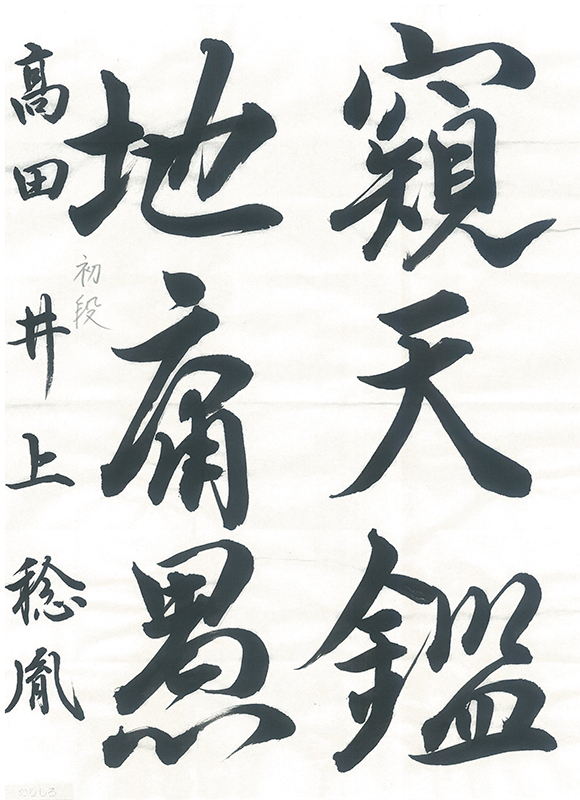 窺天鑑
地庸愚
初段
髙田 井上 稔胤